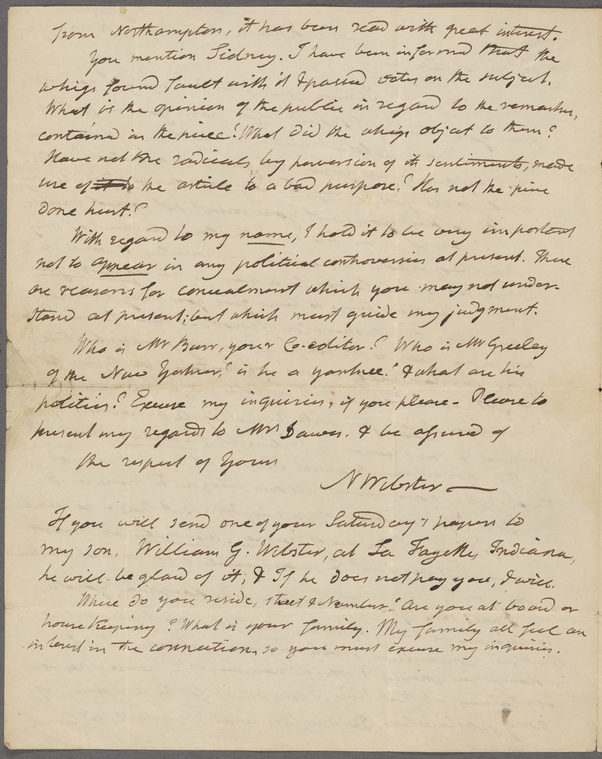 from Northampton, it has been read with great interest.
You mention Sidney. I have been informed that the
whigs found fault with it & passed votes on the subject.
What is the opinion of the public in regard to the remarks,
contained in the piece? What did the whigs object to them?
Have not the radicals, by perversion of its sentiments, made
use of it to the article to a bad purpose? Has not the piece
done hurt?
With regard to my name, I hold it to be very important
not to appear in any political controversies at present. There
are reasons for concealment which you may not under-
stand at present; but which must guide my judgment.
Who is Mr Burr, your Co-editor? Who is Mr Greeley
of the New Yorker? is he a yankee? & what are his
politics? Excuse my inquiries, if you please - Please to
present my regards to Mrs Dawes. & be assured of
the respect of Yours
N Webster
If you will send one of your Saturday's papers to
my son, William G. Webster, at La Fayette, Indiana,
he will be glad of it, & If he does not pay you, I will.
Where do you reside, street & Number? Are you at board or
house keeping? What is your family. My family all feel an
interest in the connection, so you must excuse my inquiries.